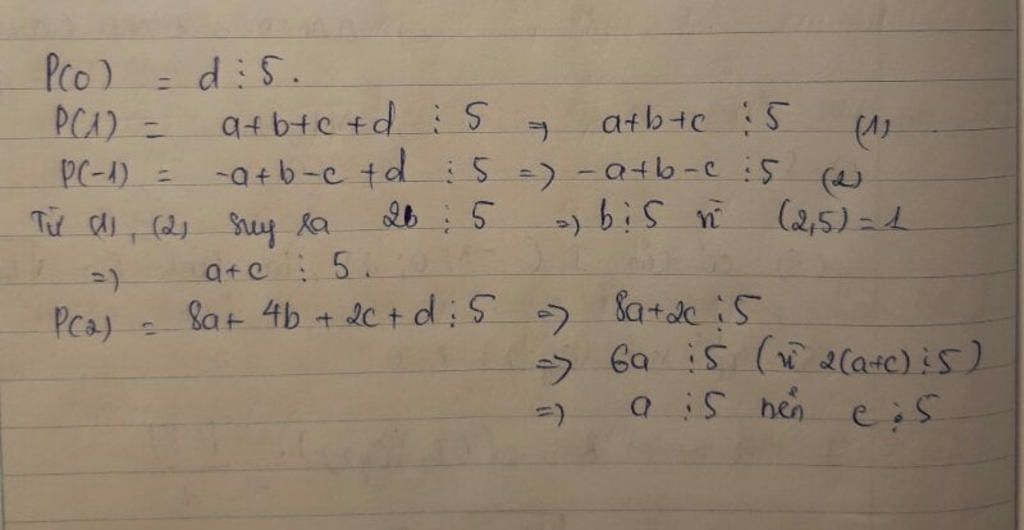 P(0) = d ⋮ 5.
P(1) = a+b+c+d ⋮ 5 => a+b+c ⋮ 5 (1)
P(-1) = -a+b-c+d ⋮ 5 => -a+b-c ⋮ 5 (2)
Từ (1), (2) suy ra 2b ⋮ 5 => b ⋮ 5 vì (2,5)=1
=> a+c ⋮ 5.
P(2) = 8a+ 4b + 2c + d ⋮ 5 => 8a+2c ⋮ 5
=> 6a ⋮ 5 (vì 2(a+c) ⋮ 5)
=> a ⋮ 5 nên c ⋮ 5